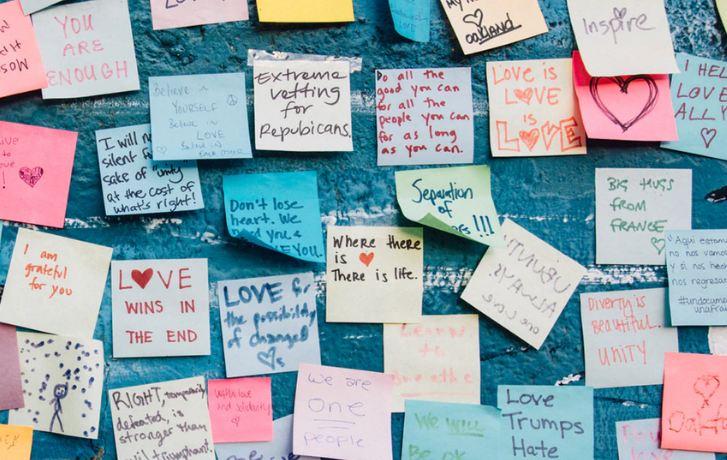 Mos
YOU
ARE
ENOUGH
my
Oakland
Inspire
Believe in
YOURSELF
Believe in
LOVE
Believe in
EACH OTHER
Extreme
vetting
for
Repubicans.
Do all the
good you can
for all the
people you can
for as long
as you can.
LOVE IS
LOVE
IS
LOVE
I HE
LOVE
ALL Y
I will n
silent fo
sake of unity
at the cost of
what's right!
Don't lose
heart. We
need you &
WE LOVE YOU
Separation
of
!!!
BIG HUGS
FROM
FRANCE
I am
grateful
for you
LOVE
WINS IN
THE END
LOVE for
the possibility
of change!
Where there
is
There is life.
UBUNTU
ALWAYS
Aqui est
no nos vamos
y si nos
no regres
#undocum
unafra
Diversity is
Beautiful.
UNITY
Learn
to
Breathe
RIGHT, temporarily
defeated, is
stronger than
evil triumphant
love and solidarity
We are
One
people
We WILL
Be OK
Love
Trumps
Hate
Oakla